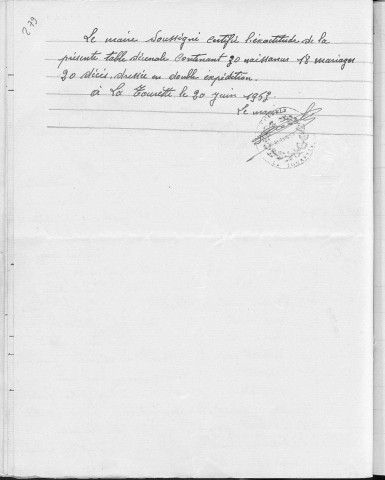 279
Le maire soussigné certifie l'exactitude de la
présente table décenale contenant 20 naissances 18 mariages
20 décés. dressée en double expédition.
à La Tourette le 20 juin 1953.
Le maire
LA TOURETTE